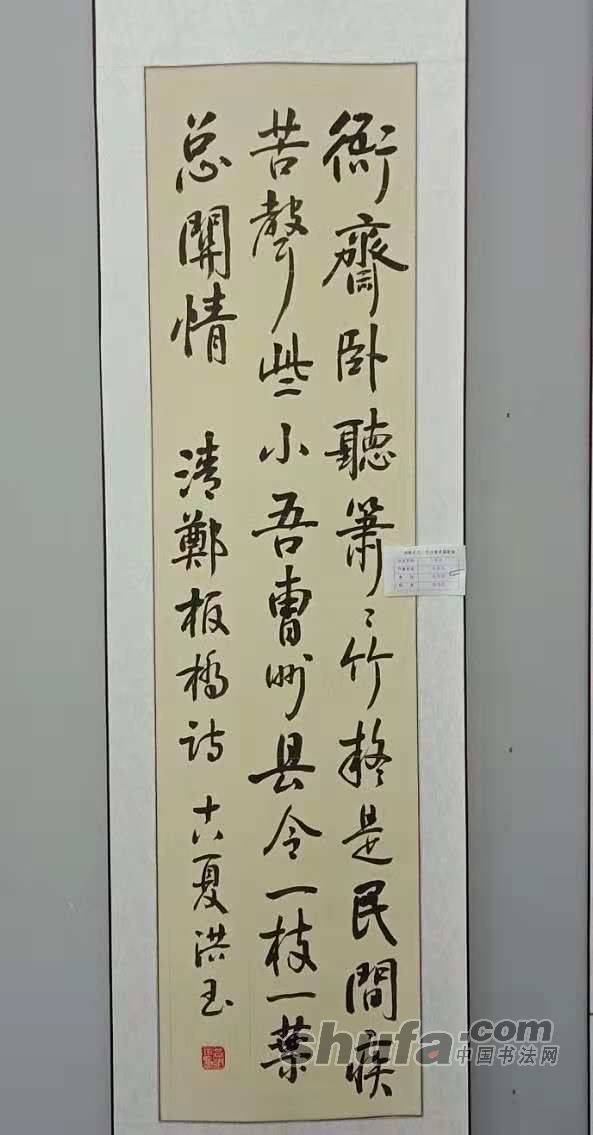 衙齋卧聽簫〻竹疑是民間疾
苦聲些小吾曹州县令一枝一葉
总關情 清鄭板橋诗 夏洪玉
shufa.com
中国书法网